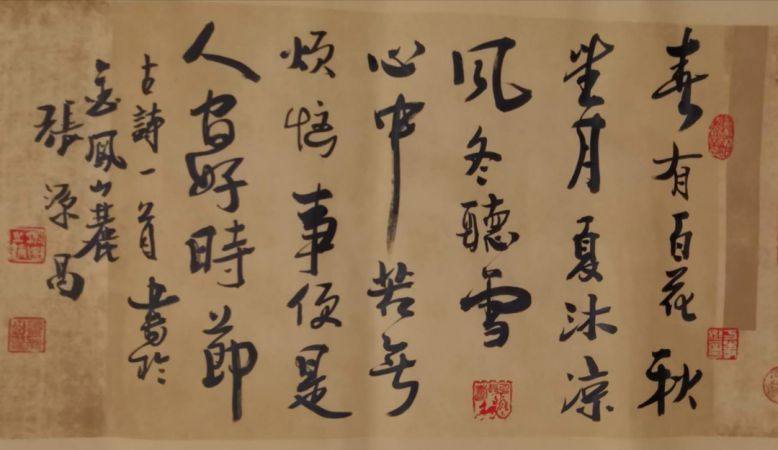 春有百花秋
望月夏沐凉
风冬聽雪
心中若無
煩惱事便是
人间好時節
古詩一首書於
金鳳山麓
張源昌